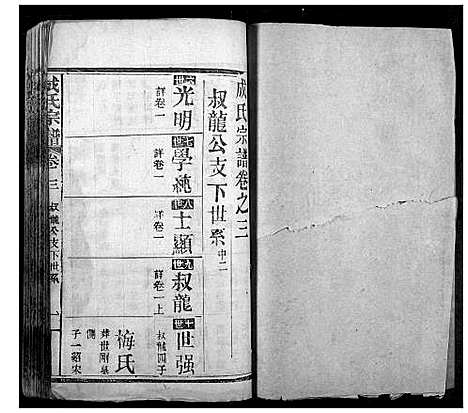 成氏宗譜卷之三
叔龍公支下世系 中二
六世
光明
詳卷一
七世
學純
詳卷一
八世
士顯
詳卷一
九世
叔龍
詳卷一上
十世
世强
叔龍四子
梅氏
葬世剛墓
側
子一紹宋
成氏宗譜
卷三
叔龍公支下世系
一